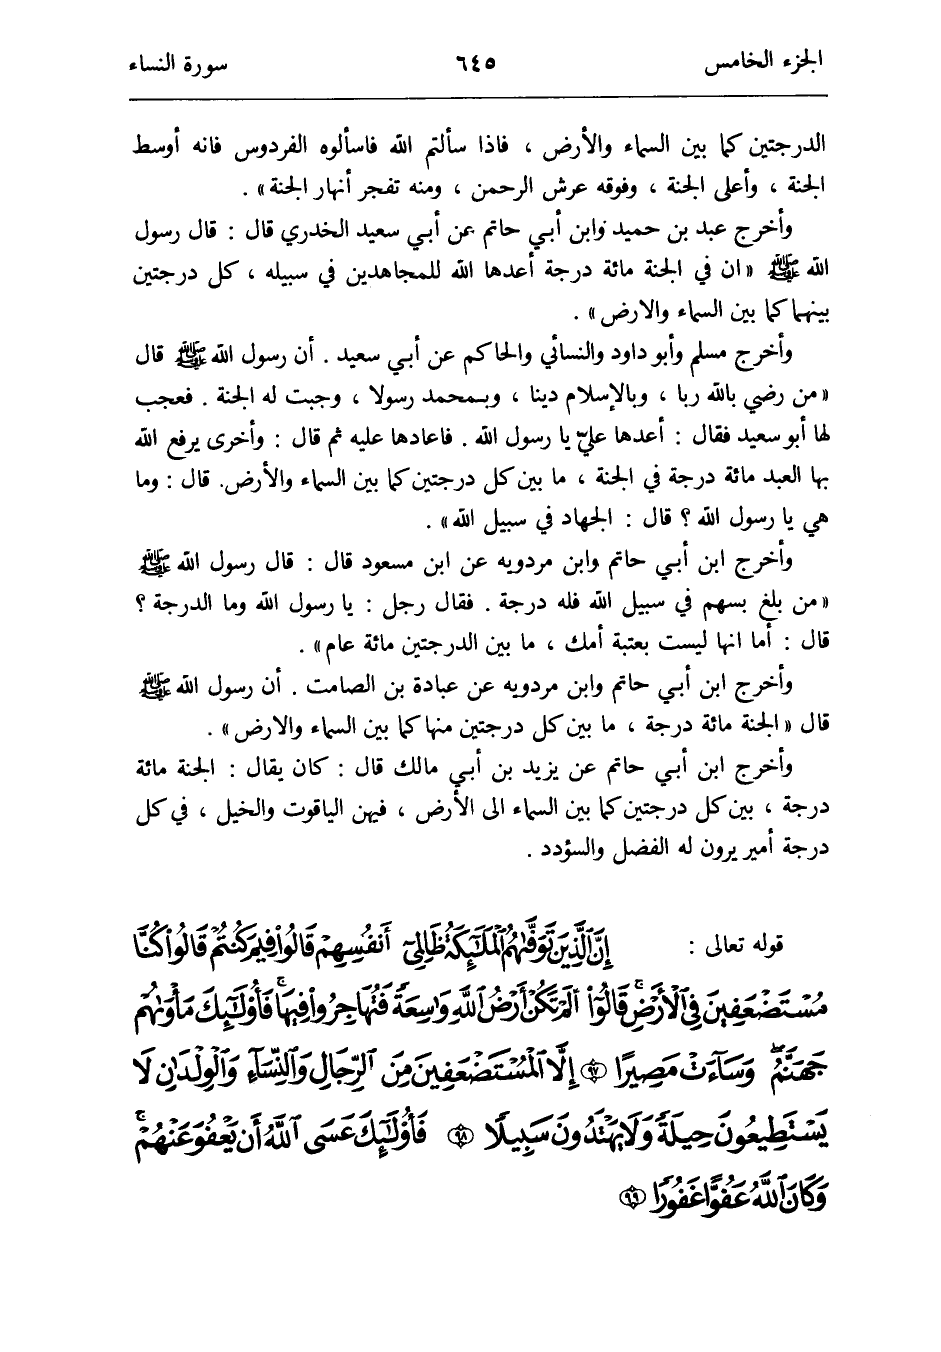 الجزء الخامس ٦٤٥ سورة النساء
الدرجتين كما بين السماء والأرض ، فاذا سألتم الله فاسألوه الفردوس فانه أوسط
الجنة ، وأعلى الجنة ، وفوقه عرش الرحمن ، ومنه تفجر أنهار الجنة» .
وأخرج عبد بن حميد وابن أبي حاتم عن أبي سعيد الخدري قال : قال رسول
الله ﷺ «ان في الجنة مائة درجة أعدها الله للمجاهدين في سبيله ، كل درجتين
بينهما كما بين السماء والارض» .
وأخرج مسلم وأبو داود والنسائي والحاكم عن أبي سعيد . أن رسول الله ﷺ قال
«من رضي بالله ربا ، وبالإسلام دينا ، وبمحمد رسولا ، وجبت له الجنة . فعجب
لها أبو سعيد فقال : أعدها عليّ يا رسول الله . فاعادها عليه ثم قال : وأخرى يرفع الله
بها العبد مائة درجة في الجنة ، ما بين كل درجتين كما بين السماء والأرض. قال : وما
هي يا رسول الله ؟ قال : الجهاد في سبيل الله» .
وأخرج ابن أبي حاتم وابن مردويه عن ابن مسعود قال : قال رسول الله ﷺ
«من بلغ بسهم في سبيل الله فله درجة . فقال رجل : يا رسول الله وما الدرجة ؟
قال : أما انها ليست بعتبة أمك ، ما بين الدرجتين مائة عام» .
وأخرج ابن أبي حاتم وابن مردويه عن عبادة بن الصامت . أن رسول الله ﷺ
قال «الجنة مائة درجة ، ما بين كل درجتين منها كما بين السماء والارض» .
وأخرج ابن أبي حاتم عن يزيد بن أبي مالك قال : كان يقال : الجنة مائة
درجة ، بين كل درجتين كما بين السماء الى الأرض ، فيهن الياقوت والخيل ، في كل
درجة أمير يرون له الفضل والسؤدد .
قوله تعالى : إِنَّ ٱلَّذِينَ تَوَفَّىٰهُمُ ٱلْمَلَـٰٓئِكَةُ ظَالِمِىٓ أَنفُسِهِمْ قَالُوا۟ فِيمَ كُنتُمْ قَالُوا۟ كُنَّا
مُسْتَضْعَفِينَ فِى ٱلْأَرْضِ ۚ قَالُوٓا۟ أَلَمْ تَكُنْ أَرْضُ ٱللَّهِ وَٰسِعَةً فَتُهَاجِرُوا۟ فِيهَا ۚ فَأُو۟لَـٰٓئِكَ مَأْوَىٰهُمْ
جَهَنَّمُ ۖ وَسَآءَتْ مَصِيرًا ﴿٩٧﴾ إِلَّا ٱلْمُسْتَضْعَفِينَ مِنَ ٱلرِّجَالِ وَٱلنِّسَآءِ وَٱلْوِلْدَٰنِ لَا
يَسْتَطِيعُونَ حِيلَةً وَلَا يَهْتَدُونَ سَبِيلًا ﴿٩٨﴾ فَأُو۟لَـٰٓئِكَ عَسَى ٱللَّهُ أَن يَعْفُوَ عَنْهُمْ ۚ
وَكَانَ ٱللَّهُ عَفُوًّا غَفُورًا ﴿٩٩﴾